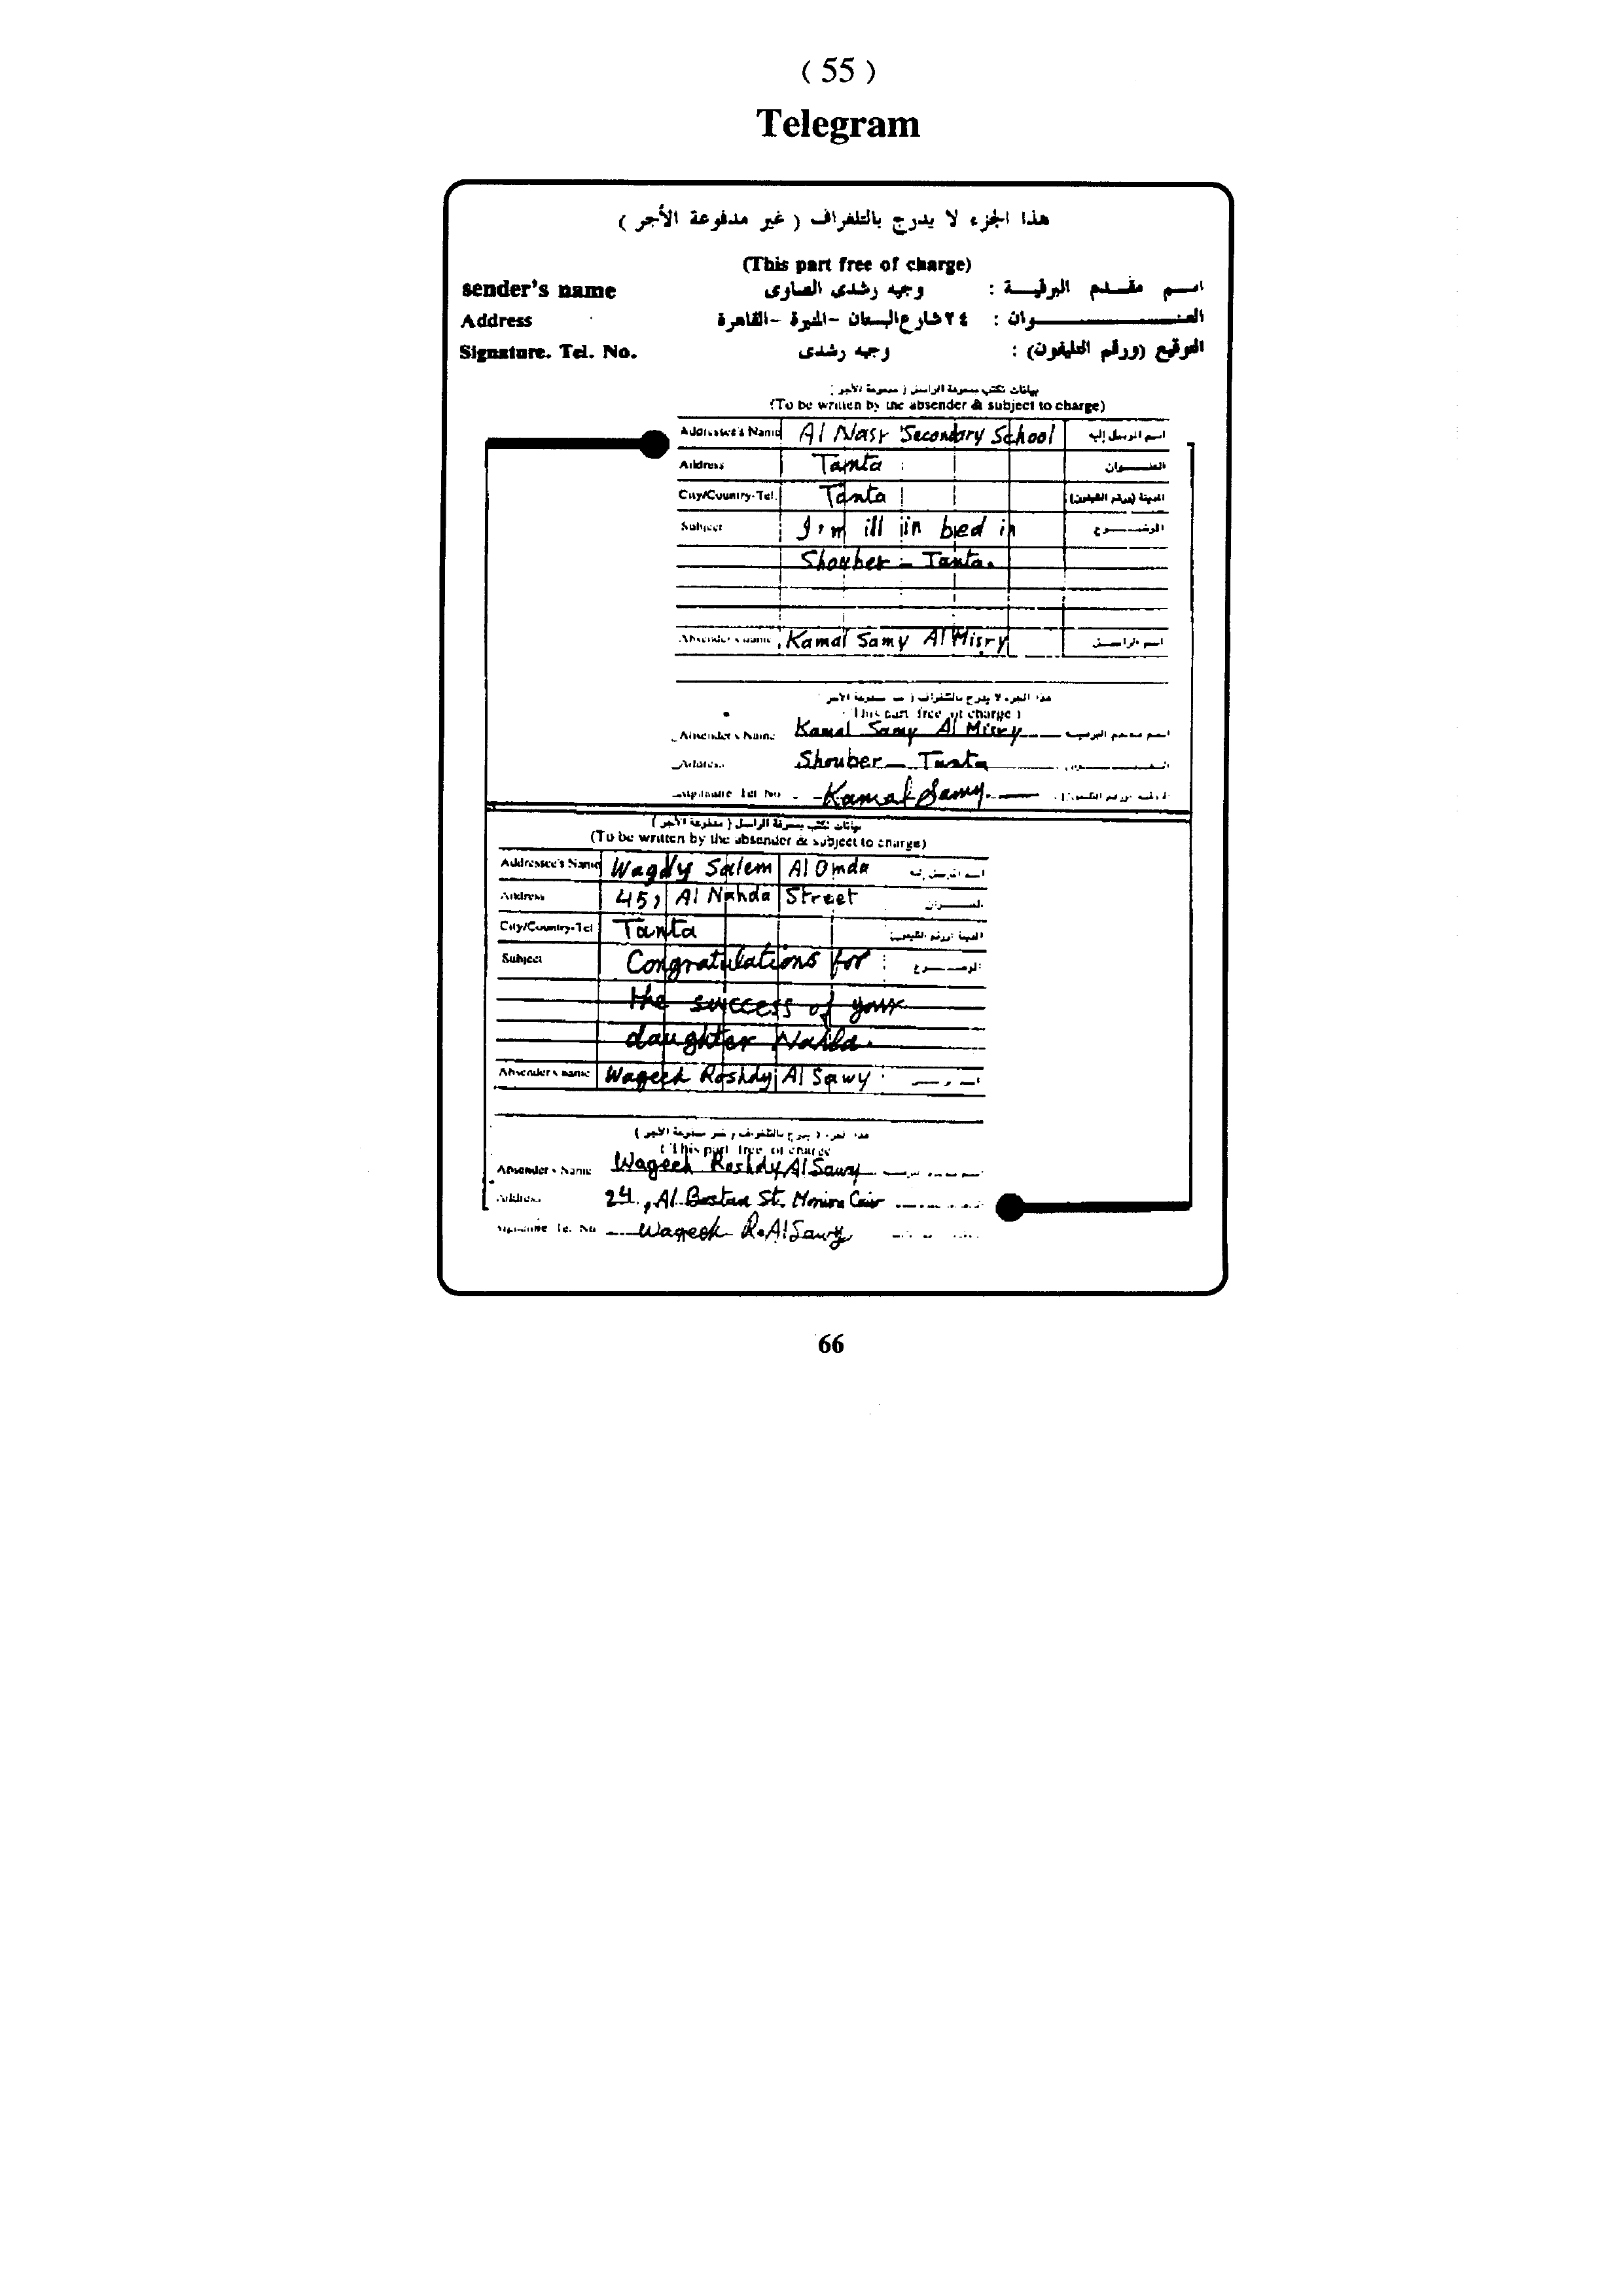 ( 55 )
Telegram
هذا الجزء لا يدرج بالتلغراف ( غير مدفوعة الأجر )
(This part free of charge)
sender's name وجيه رشدى الصاوى اسم مقدم البرقية :
Address ٢٤ شارع البستان - المنيرة - القاهرة العنوان :
Signature. Tel. No. وجيه رشدى التوقيع (ورقم التليفون) :
بيانات تكتب بمعرفة الراسل ( مدفوعة الأجر )
(To be written by the absender & subject to charge)
Addressee's Name Al Nasr Secondary School اسم المرسل إليه
Address Tanta العنوان
City/Country-Tel. Tanta المدينة (ورقم التليفون)
Subject I'm ill in bed in الموضوع
Shouber - Tanta.
Absender's name Kamal Samy Al Misry اسم الراسل
هذا الجزء لا يدرج بالتلغراف
(This part free of charge)
Absender's Name Kamal Samy Al Misry اسم مقدم البرقية
Address Shouber - Tanta
Signature Tel No Kamal Samy
بيانات تكتب بمعرفة الراسل ( مدفوعة الأجر )
(To be written by the absender & subject to charge)
Addressee's Name Wagdy Salem Al Omda اسم المرسل إليه
Address 45, Al Nahda Street العنوان
City/Country-Tel Tanta المدينة (ورقم التليفون)
Subject Congratulations for الموضوع
the success of your
daughter Nahla.
Absender's name Wageeh Roshdy Al Sawy
(This part free of charge
Absender's Name Wageeh Roshdy Al Sawy
Address 24, Al Bostan St. Monira Cairo
Signature Tel. No Wageeh R. Al Sawy
66